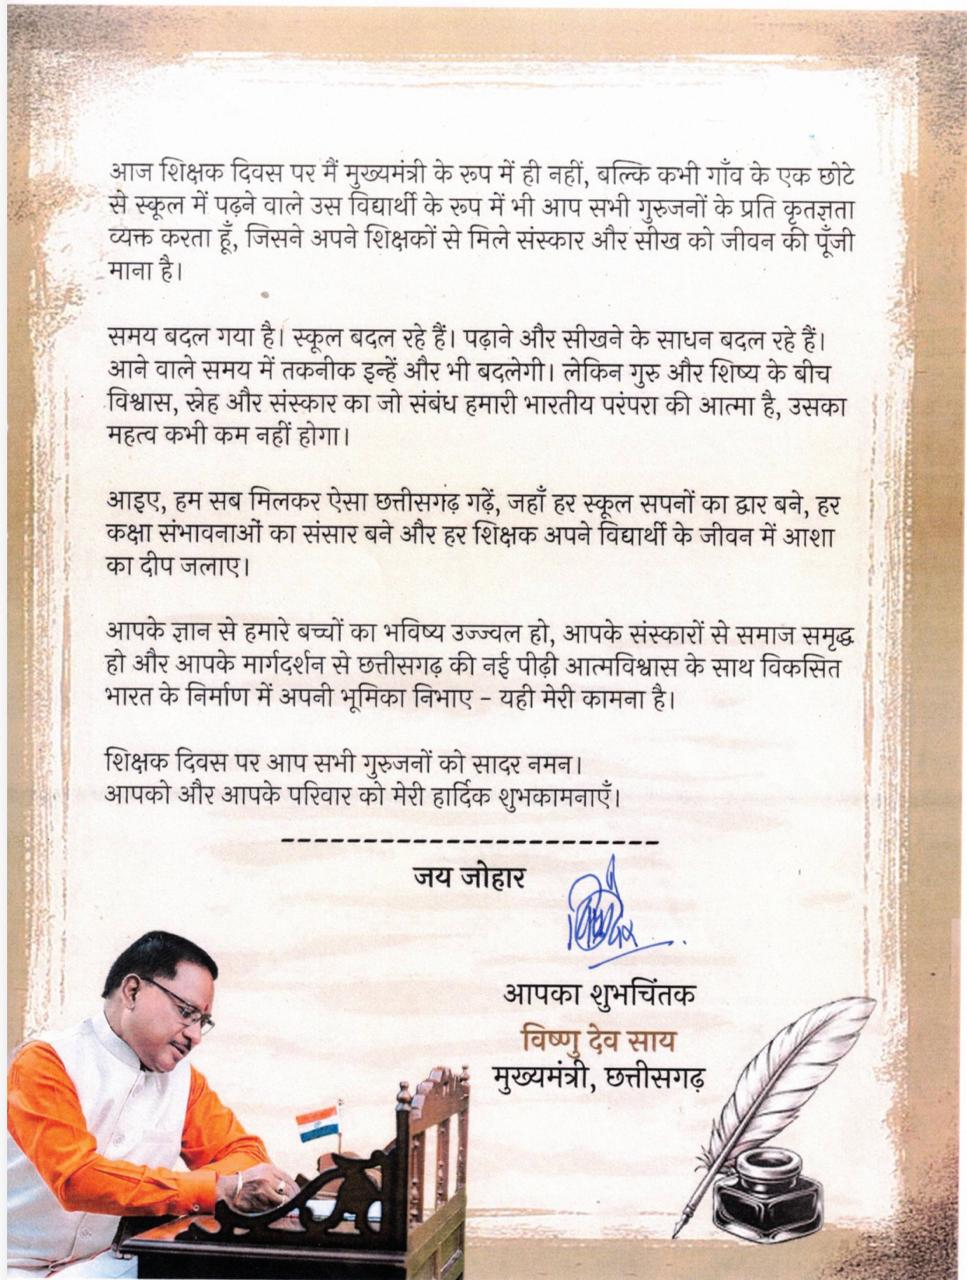 आज शिक्षक दिवस पर मैं मुख्यमंत्री के रूप में ही नहीं, बल्कि कभी गाँव के एक छोटे
से स्कूल में पढ़ने वाले उस विद्यार्थी के रूप में भी आप सभी गुरुजनों के प्रति कृतज्ञता
व्यक्त करता हूँ, जिसने अपने शिक्षकों से मिले संस्कार और सीख को जीवन की पूँजी
माना है।
समय बदल गया है। स्कूल बदल रहे हैं। पढ़ाने और सीखने के साधन बदल रहे हैं।
आने वाले समय में तकनीक इन्हें और भी बदलेगी। लेकिन गुरु और शिष्य के बीच
विश्वास, स्नेह और संस्कार का जो संबंध हमारी भारतीय परंपरा की आत्मा है, उसका
महत्व कभी कम नहीं होगा।
आइए, हम सब मिलकर ऐसा छत्तीसगढ़ गढ़ें, जहाँ हर स्कूल सपनों का द्वार बने, हर
कक्षा संभावनाओं का संसार बने और हर शिक्षक अपने विद्यार्थी के जीवन में आशा
का दीप जलाए।
आपके ज्ञान से हमारे बच्चों का भविष्य उज्ज्वल हो, आपके संस्कारों से समाज समृद्ध
हो और आपके मार्गदर्शन से छत्तीसगढ़ की नई पीढ़ी आत्मविश्वास के साथ विकसित
भारत के निर्माण में अपनी भूमिका निभाए – यही मेरी कामना है।
शिक्षक दिवस पर आप सभी गुरुजनों को सादर नमन।
आपको और आपके परिवार को मेरी हार्दिक शुभकामनाएँ।
जय जोहार
आपका शुभचिंतक
विष्णु देव साय
मुख्यमंत्री, छत्तीसगढ़